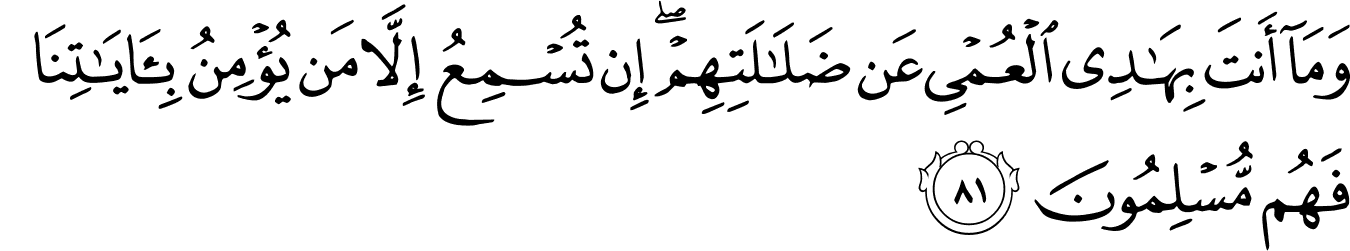 وَمَآ أَنتَ بِهَـٰدِى ٱلْعُمْىِ عَن ضَلَـٰلَتِهِمْ ۖ إِن تُسْمِعُ إِلَّا مَن يُؤْمِنُ بِـَٔايَـٰتِنَا
فَهُم مُّسْلِمُونَ ٨١